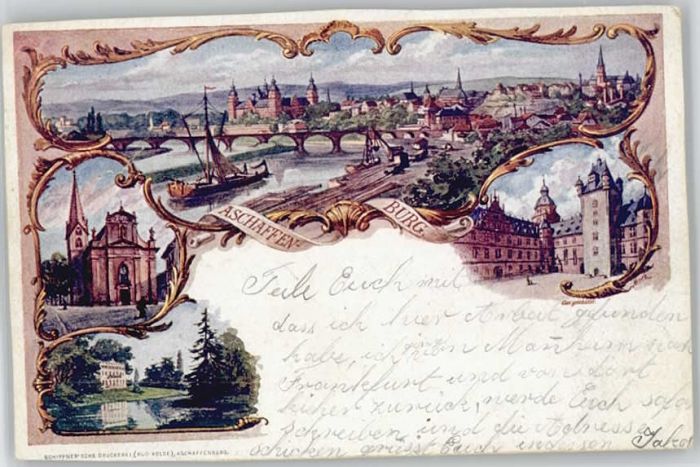 ASCHAFFENBURG.
Ges. geschützt
Teile Euch mit
dass ich hier Arbeit gefunden
habe, ich von Manheim nach
Frankfurt und von dort
hierher zurück, werde Euch sofort
schreiben und die Adresse
schicken grüsst Euch
Jakob
SCHIPPNER'SCHE DRUCKEREI, ASCHAFFENBURG.